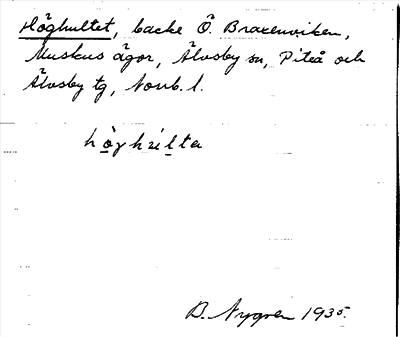 Höghultet, backe Ö. Braxenviken,
Muskus ägor, Älvsby sn, Piteå och
Älvsby tg, Norrb. l.
B. Nygren 1935.